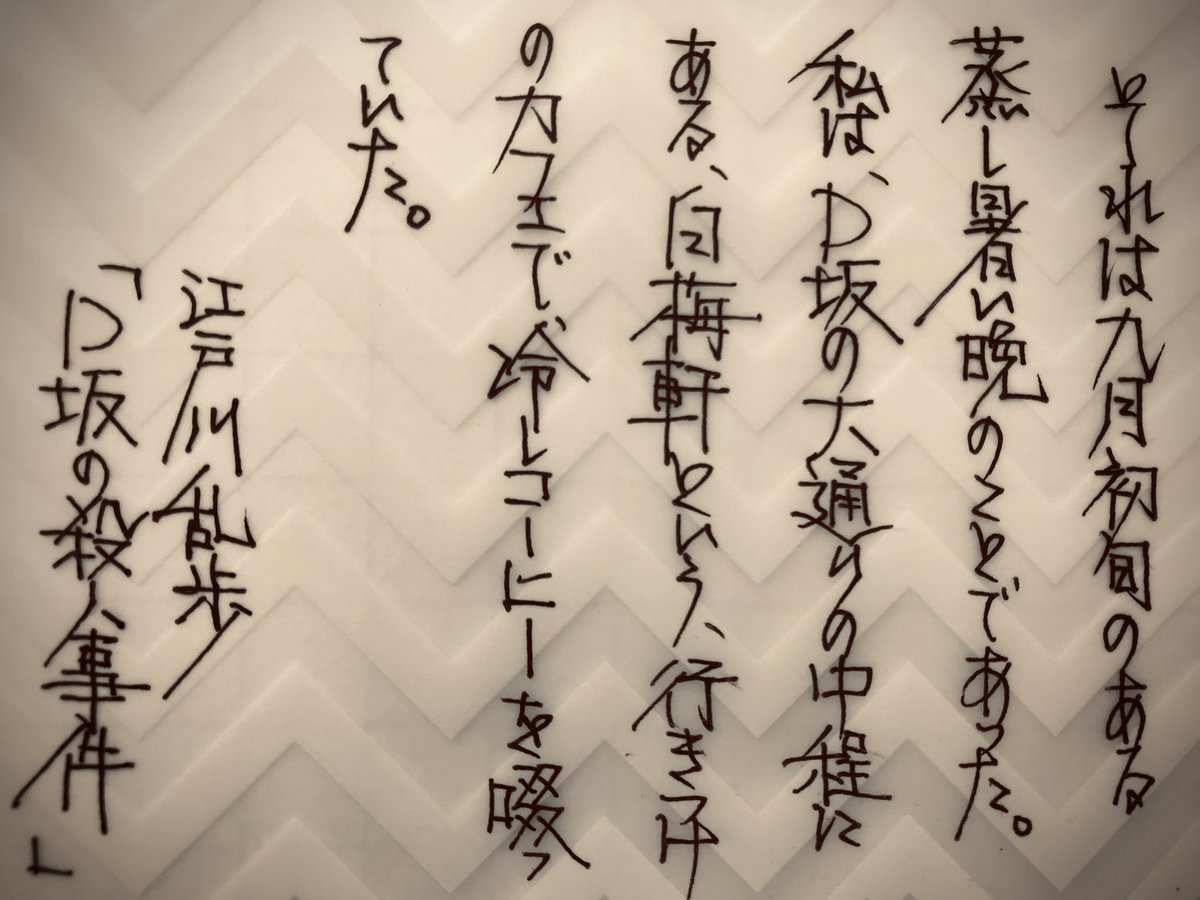 それは九月初旬のある
蒸し暑い晩のことであった。
私は、D坂の大通りの中程に
ある、白梅軒という、行きつけ
のカフェで、冷しコーヒーを啜っ
ていた。
江戸川乱歩
「D坂の殺人事件」